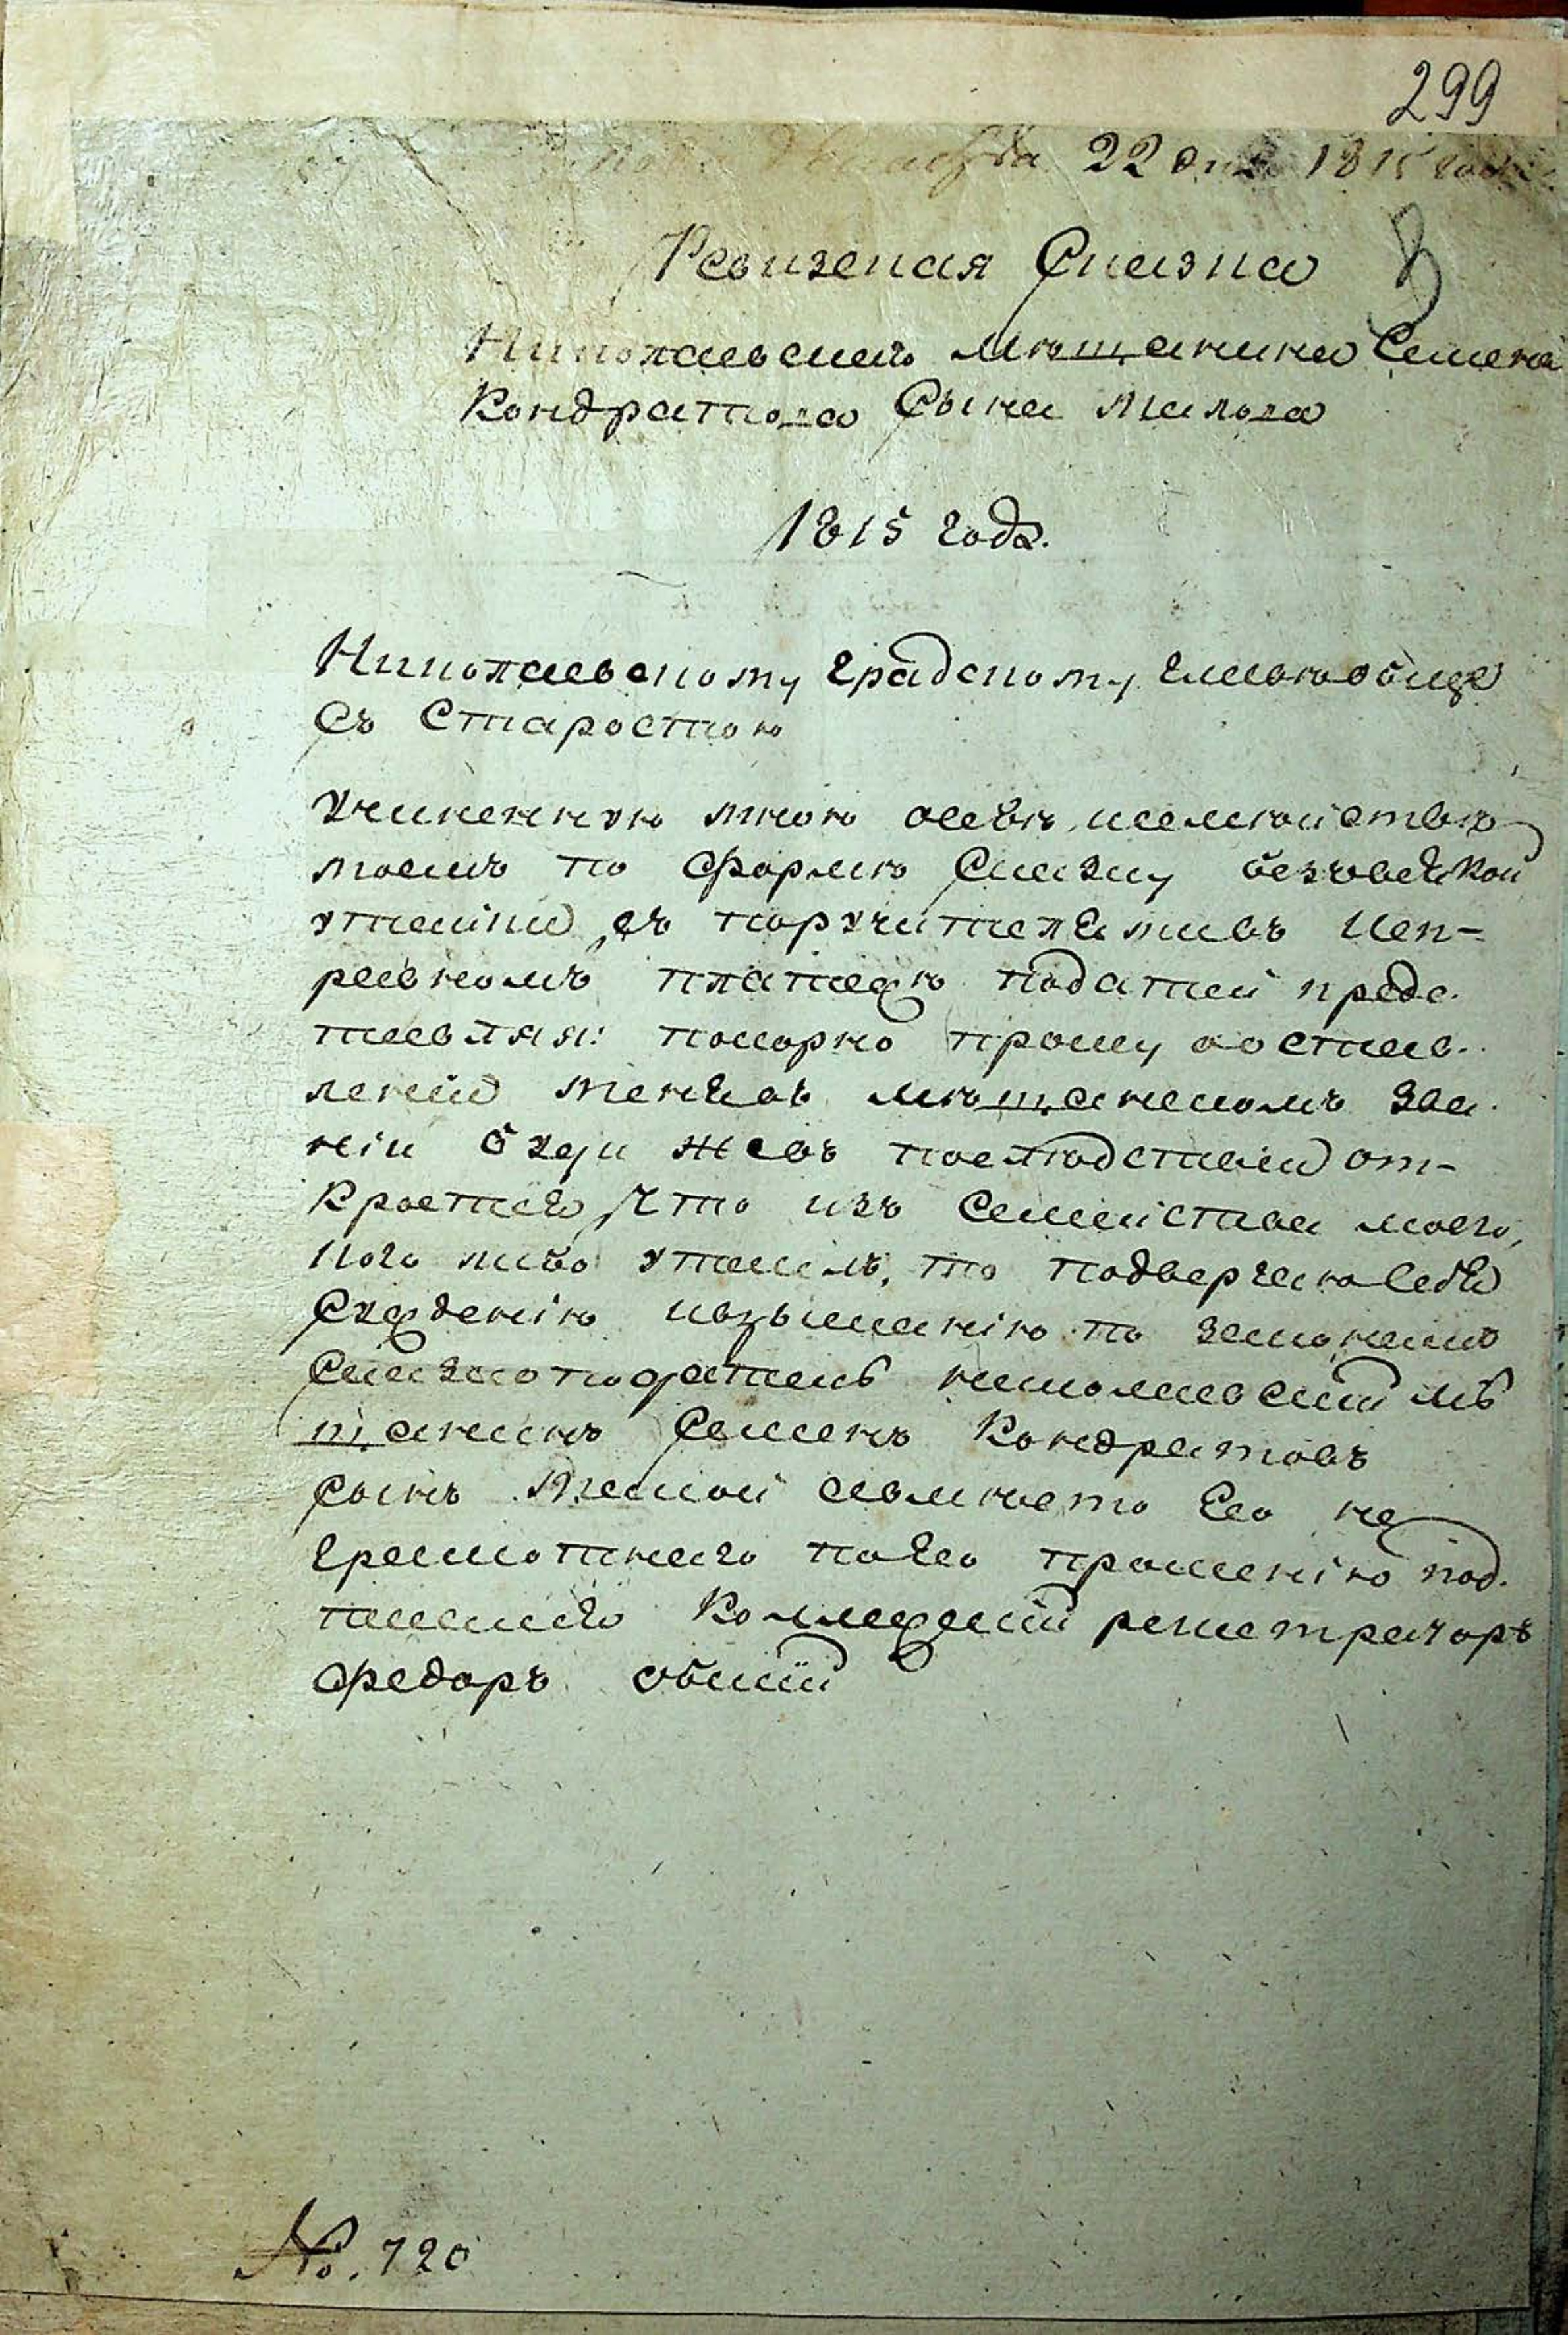 299
22 дня 1815 года
Ревизская Сказка
Николаевскаго мѣщанина Семена
Кондратова Сына Малова
1815 года.
Николаевскому градскому главѣ обще
съ Старостою
Учиненную мною осебѣ, исемѣйствѣ
моемъ по формѣ Сказку безъвсякой
утайки, съ поручителями въ исп-
равномъ платежѣ податей предс-
тавляя: покорно прошу о остав-
лении меня въ мѣщанскомъ зва-
нии буди же въ последствии от-
кроется, что изъ Семейства моего,
кого либо утаилъ, то подвергаю Себя
Сужденію ивзысканію по законамъ
Сказкоподатель николаевский мѣ
щанинъ Семенъ Кондратовъ
сынъ Малой авмѣсто Его не
грамотнаго поЕго прошенію под-
писался Коллежский регистраторъ
федоръ
No. 720